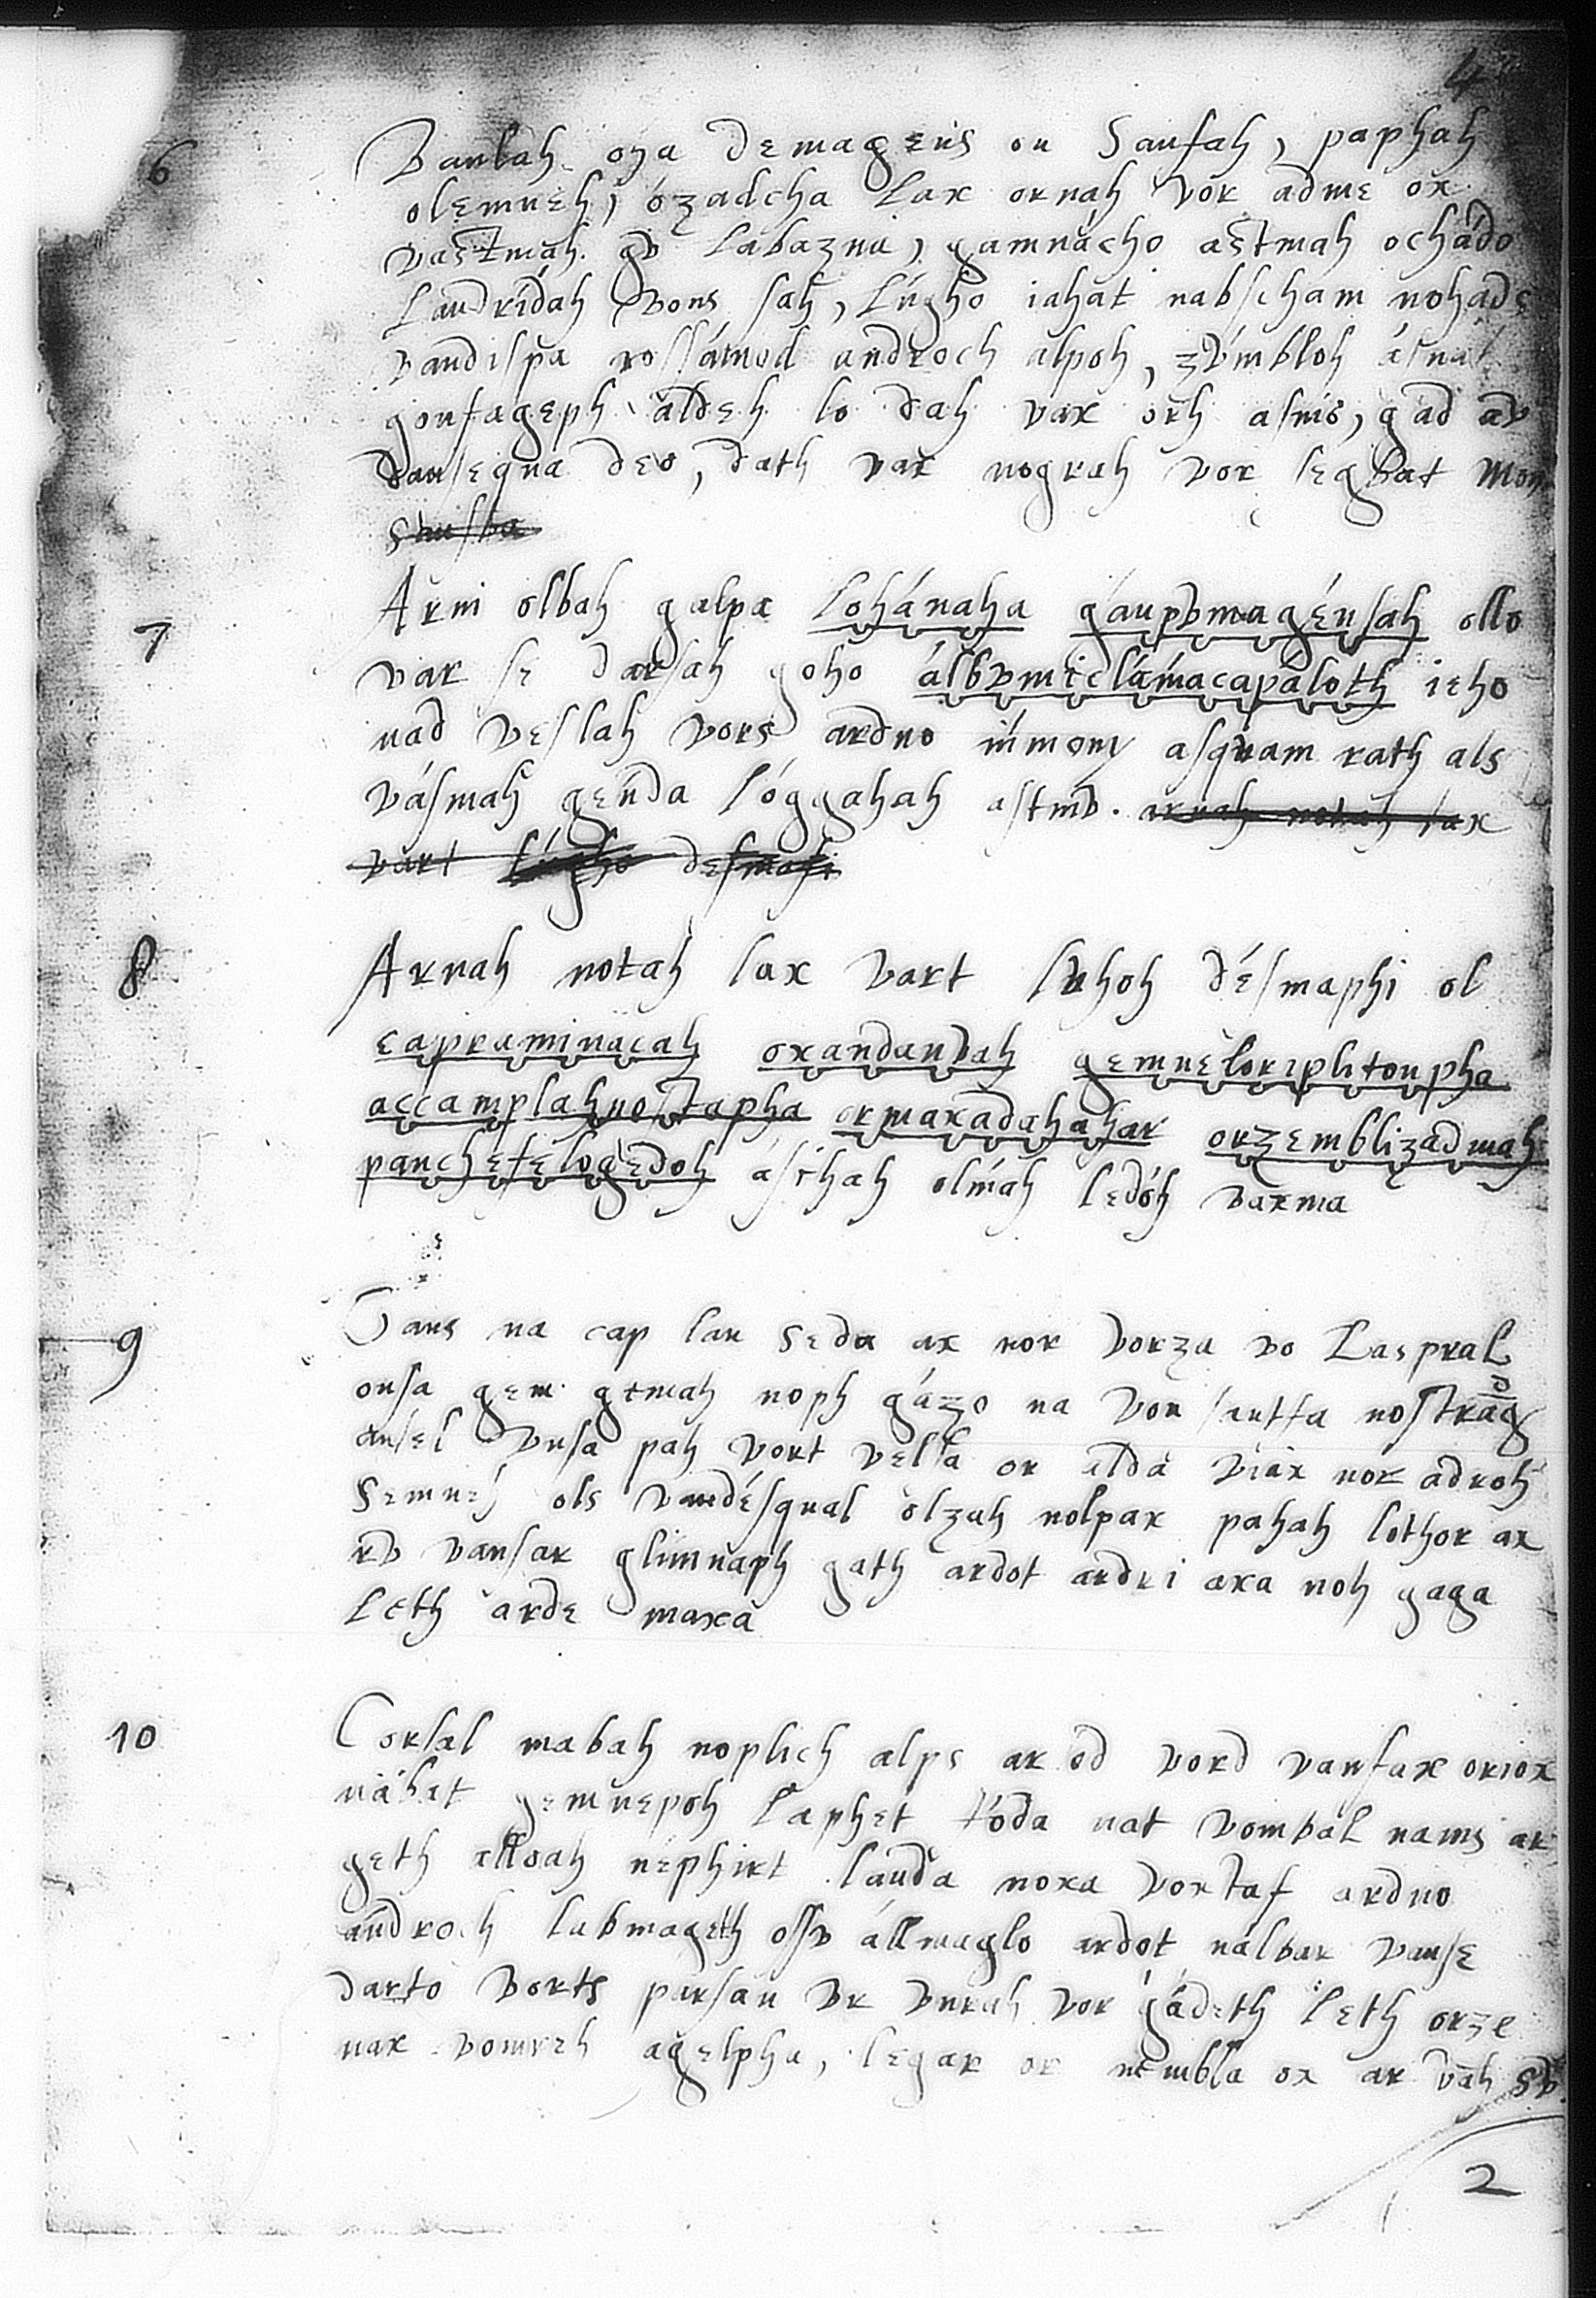 4
6 Banlah oza demagens on Saufah, paphah
olemneh, ózadcha lax ornah vor adme ox
vastmah gv labazna, gamnácho astmah ochádo
landrídah vons sah, lúgho iahat nabscham nohads
vandispa rossámod androch alpoh, zúmbloh ásnah
gonfageph aldeh lo dah vax orh asmo, gad av
dansequa deo, dath vax nograh vor segbat Mon
7 Arni olbah galpa lohánaha gáupvmagénsah ollo
var se darsah goho álbvmiclámacapáloth ieho
nad veslah vors ardno inmony asquam rath als
vásmah génda lóggahah astmv. arnah notah lax
vart lúgho desmafi
8 Arnah notah lax vart luhoh désmaphi ol
capraminacah oxandanvah gemneloriplitonpha
accamplahnostapha ormaxadahahar orzemblizadmah
panchefelogedoh áschah olmah ledóh vaxma
9 Gans na cap lan seda ax nor vorza vo Laspral
onsa gem gemah noph gázo na von santfa nostrag
ansel vnsa pah vort velsa or alda viax nor adroh
semneh ols vandésqual olzah nolpax pahah lothor ax
rv vansar glimnaph gath ardot ardri axa noh gaga
leth arde maxa
10 Corsal mabah noplich alps ar od vord vanfax oriox
nábat gemnepoh laphet Ióda nat vombal nams ar
geth alloah néphirt lauda noxa voxtaf ardno
andro.h labmageth ossv állmaglo ardot nalbar vanse
darto vorts parsan vr vnrah vor gádeth leth orze
nax vomreh agelpha, legar or nembla ox ar vah sv.
2